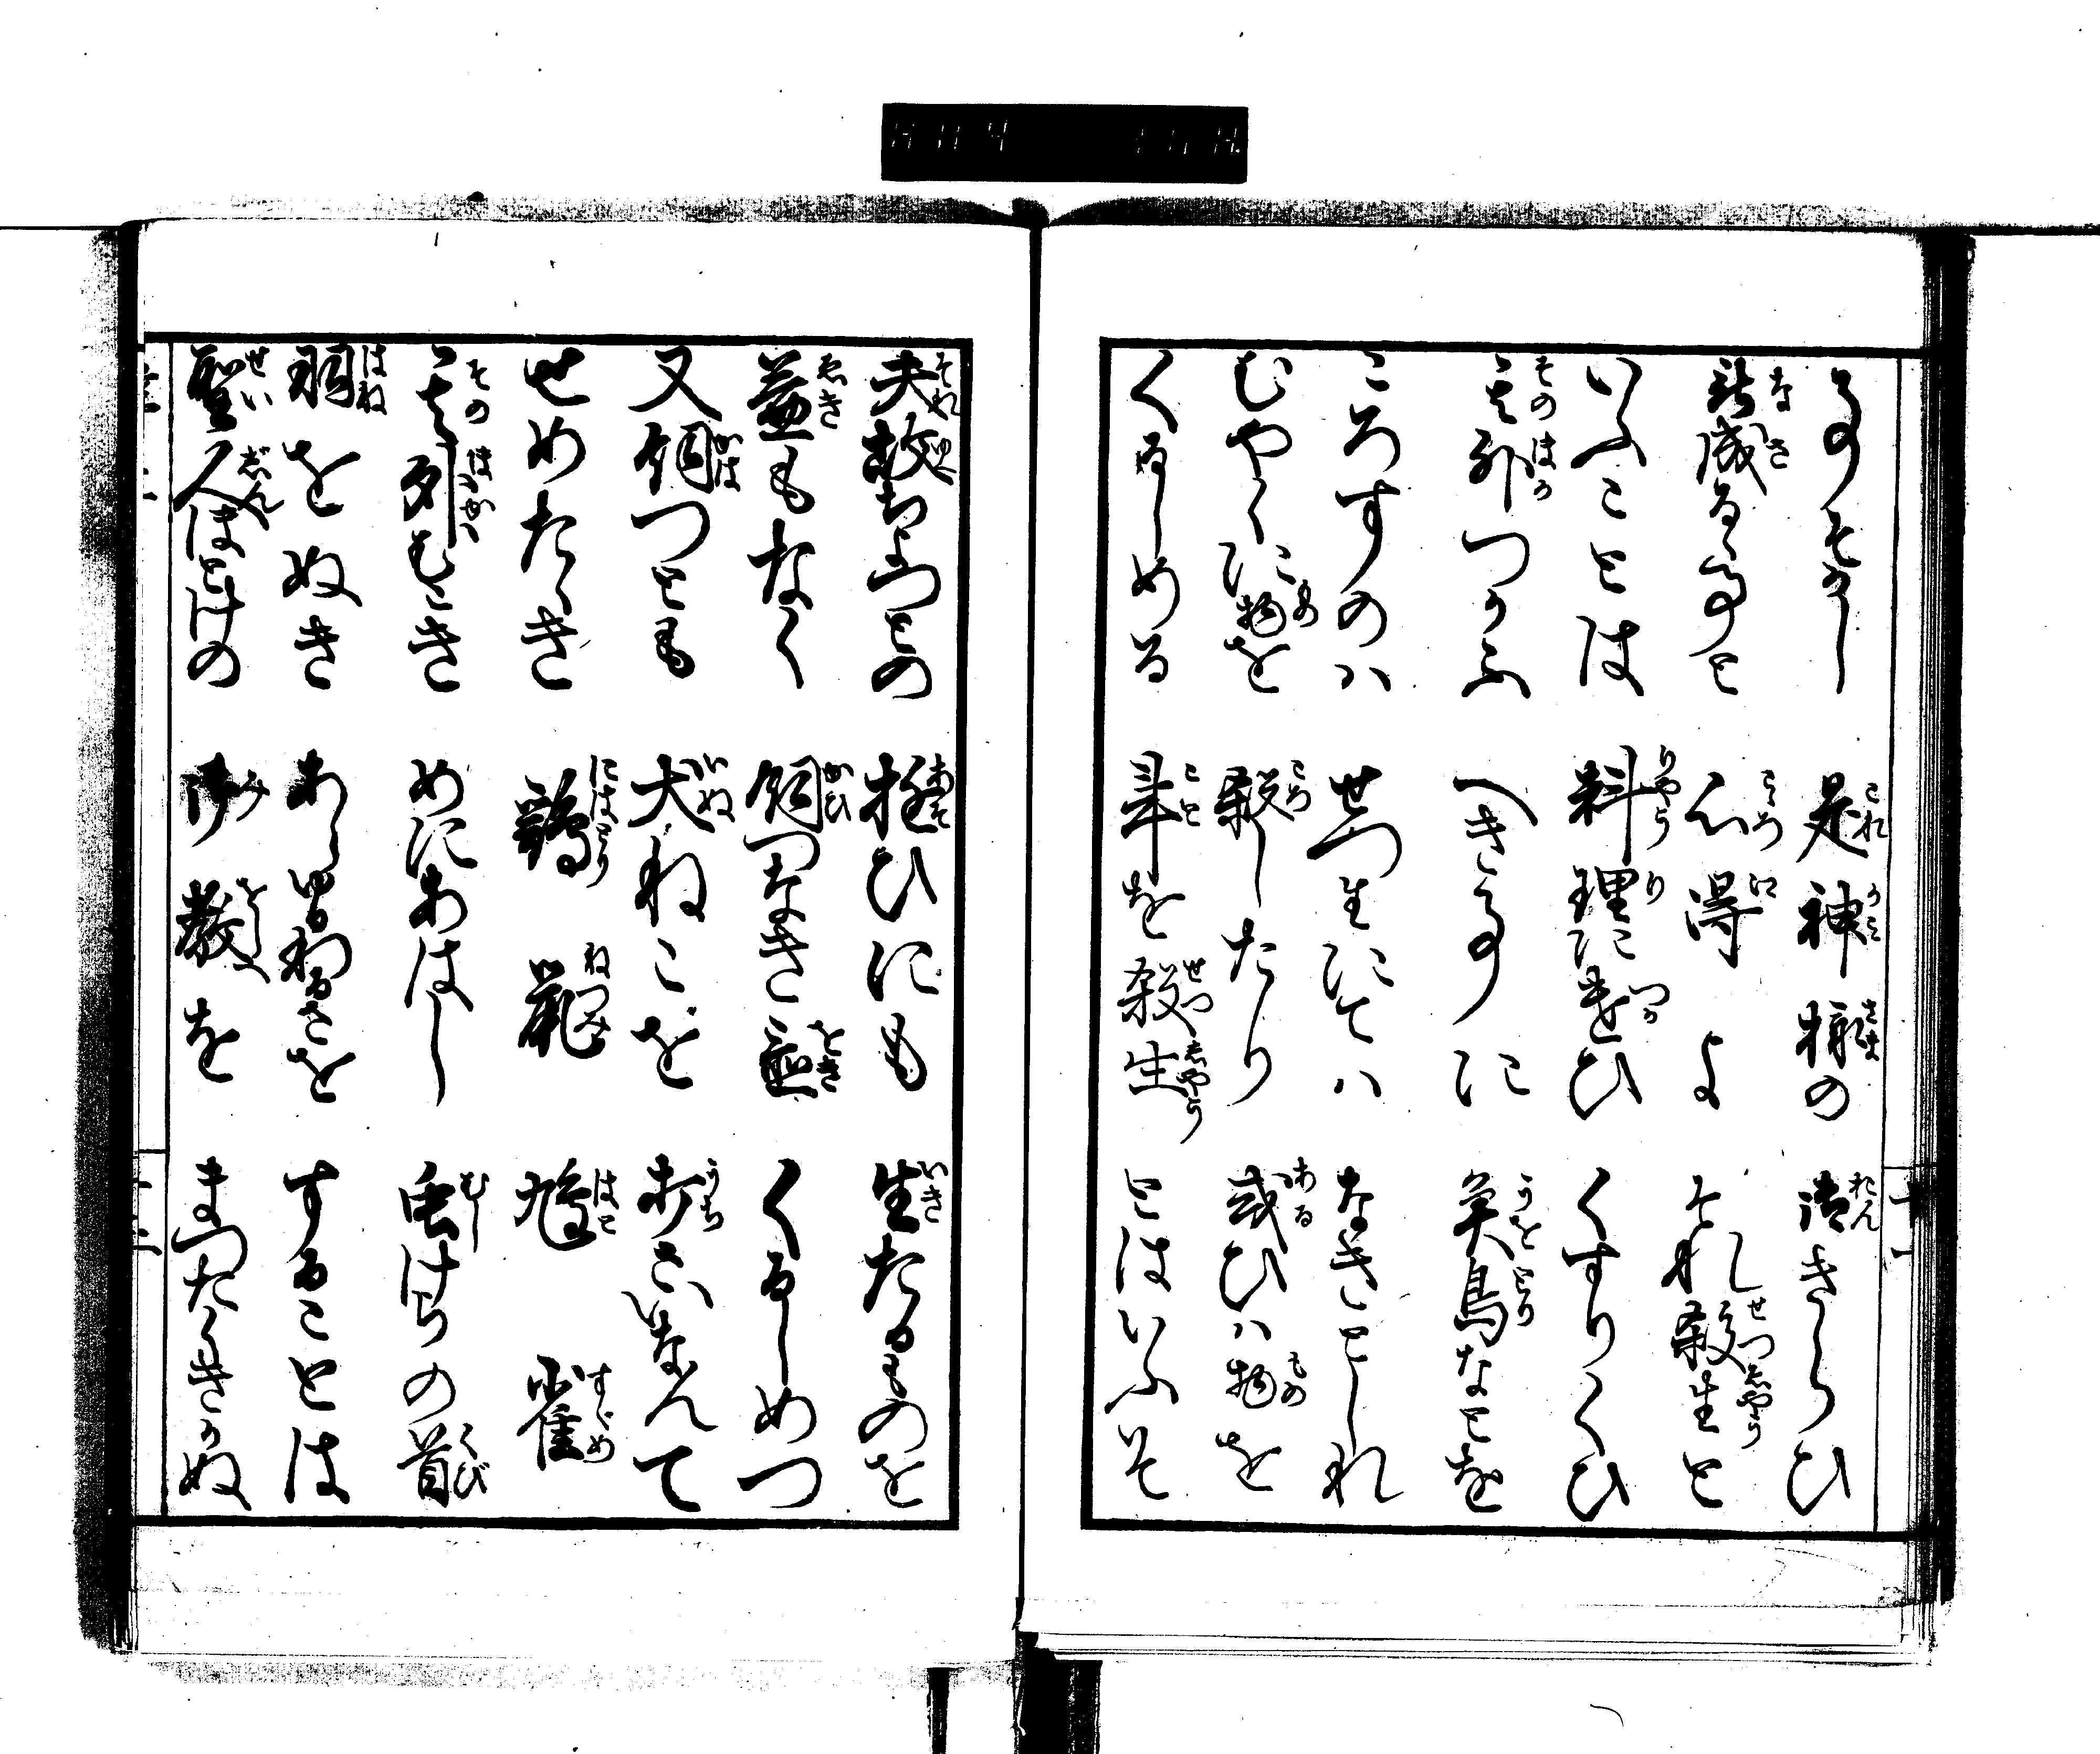 事そかし　是神様の　御きらひ
新成る事と　心得よ　それ殺生と
いふことは　料理に遣ひ　くすりくひ
其外つかふ　へき事に　魚鳥なとを
ころすのハ　せつ生にてハ　なきとしれ
むやくに物を　殺したり　或ひハ物を
くるしめる　事を殺生　とはいふそ
夫故ちよつとの　遊ひにも　生たるものを
益もなく　飼つなき置　くるしめつ
又飼つとも　犬ねこを　打さいなんて
せめたゝき　鶏　鼠　鳩　雀
其外むこき　めにあはし　虫けらの首
羽をぬき　あしゆわるさを　することは
聖人ほとけの　御教を　まつたくきかぬ
十一